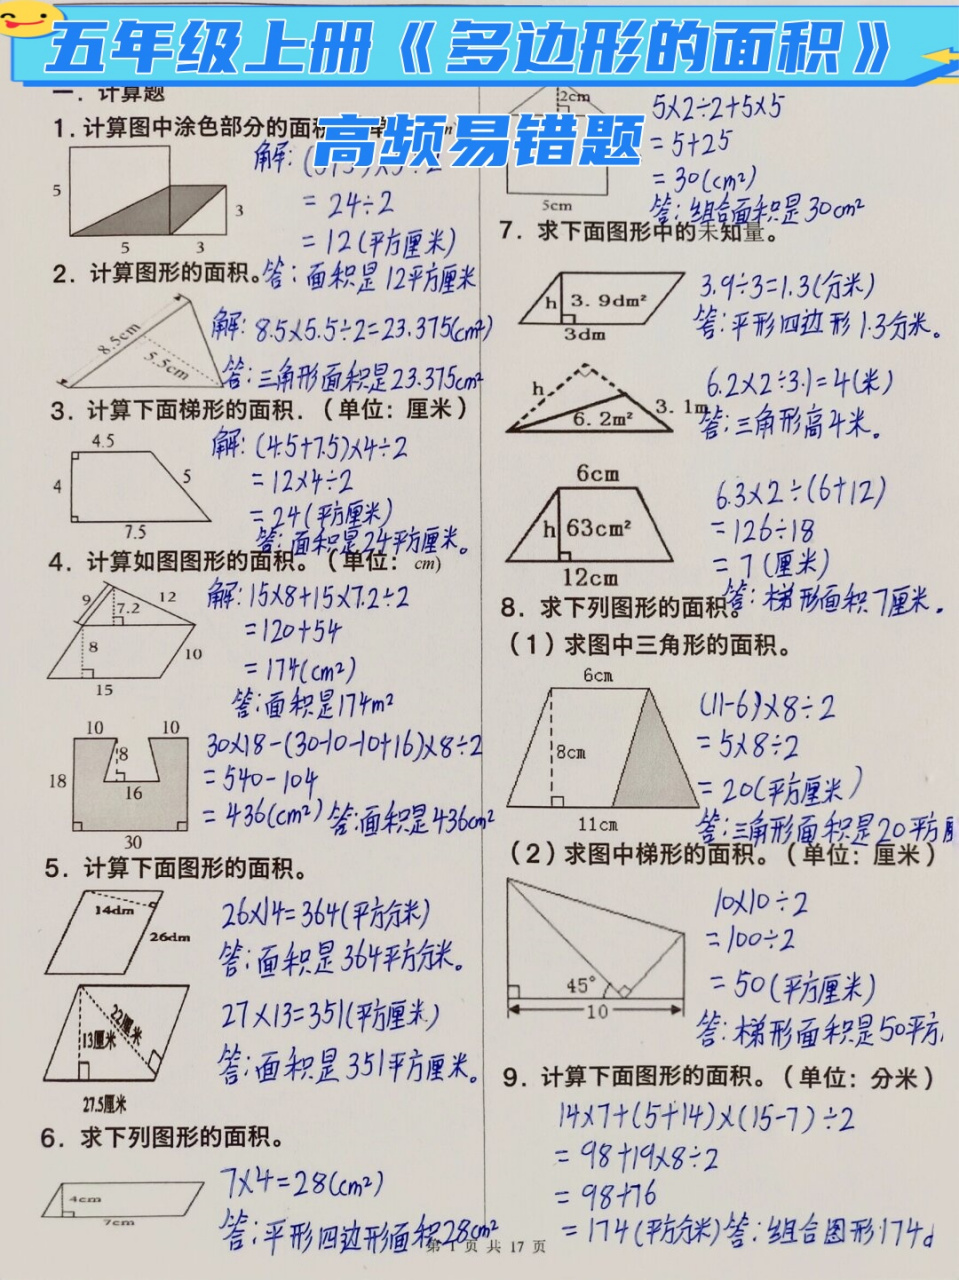 五年级上册《多边形的面积》
高频易错题
一．计算题
1．计算图中涂色部分的面积
5
3
5
3
解：
= 24÷2
= 12(平方厘米)
答：面积是12平方厘米
2．计算图形的面积。
8.5cm
5.5cm
解：8.5×5.5÷2=23.375(cm²)
答：三角形面积是23.375cm²
3．计算下面梯形的面积．（单位：厘米）
4.5
4
5
7.5
解：(4.5+7.5)×4÷2
= 12×4÷2
= 24(平方厘米)
答：面积是24平方厘米。
4．计算如图图形的面积。（单位：cm）
9
12
7.2
8
10
15
解：15×8+15×7.2÷2
=120+54
= 174(cm²)
答：面积是174m²
10
10
8
18
16
30
30×18-(30-10-10+16)×8÷2
= 540-104
= 436(cm²) 答：面积是436cm²
5．计算下面图形的面积。
14dm
26dm
26×14=364(平方分米)
答：面积是364平方分米。
22厘米
13厘米
27.5厘米
27×13=351(平方厘米)
答：面积是351平方厘米。
6．求下列图形的面积。
4cm
7cm
7×4=28(cm²)
答：平形四边形面积28cm²
2cm
5cm
5×2÷2+5×5
= 5+25
= 30(cm²)
答：组合面积是30cm²
7．求下面图形中的未知量。
h
3.9dm²
3dm
3.9÷3=1.3(分米)
答：平形四边形1.3分米。
h
3.1m
6.2m²
6.2×2÷3.1=4(米)
答：三角形高4米。
6cm
h
63cm²
12cm
63×2÷(6+12)
= 126÷18
= 7(厘米)
答：梯形面积7厘米。
8．求下列图形的面积。
（1）求图中三角形的面积。
6cm
8cm
11cm
(11-6)×8÷2
= 5×8÷2
= 20(平方厘米)
答：三角形面积是20平方
（2）求图中梯形的面积。（单位：厘米）
45°
10
10×10÷2
= 100÷2
= 50(平方厘米)
答：梯形面积是50平方
9．计算下面图形的面积。（单位：分米）
14×7+(5+14)×(15-7)÷2
= 98+19×8÷2
= 98+76
= 174(平方分米)答：组合图形174d
第 1 页 共 17 页